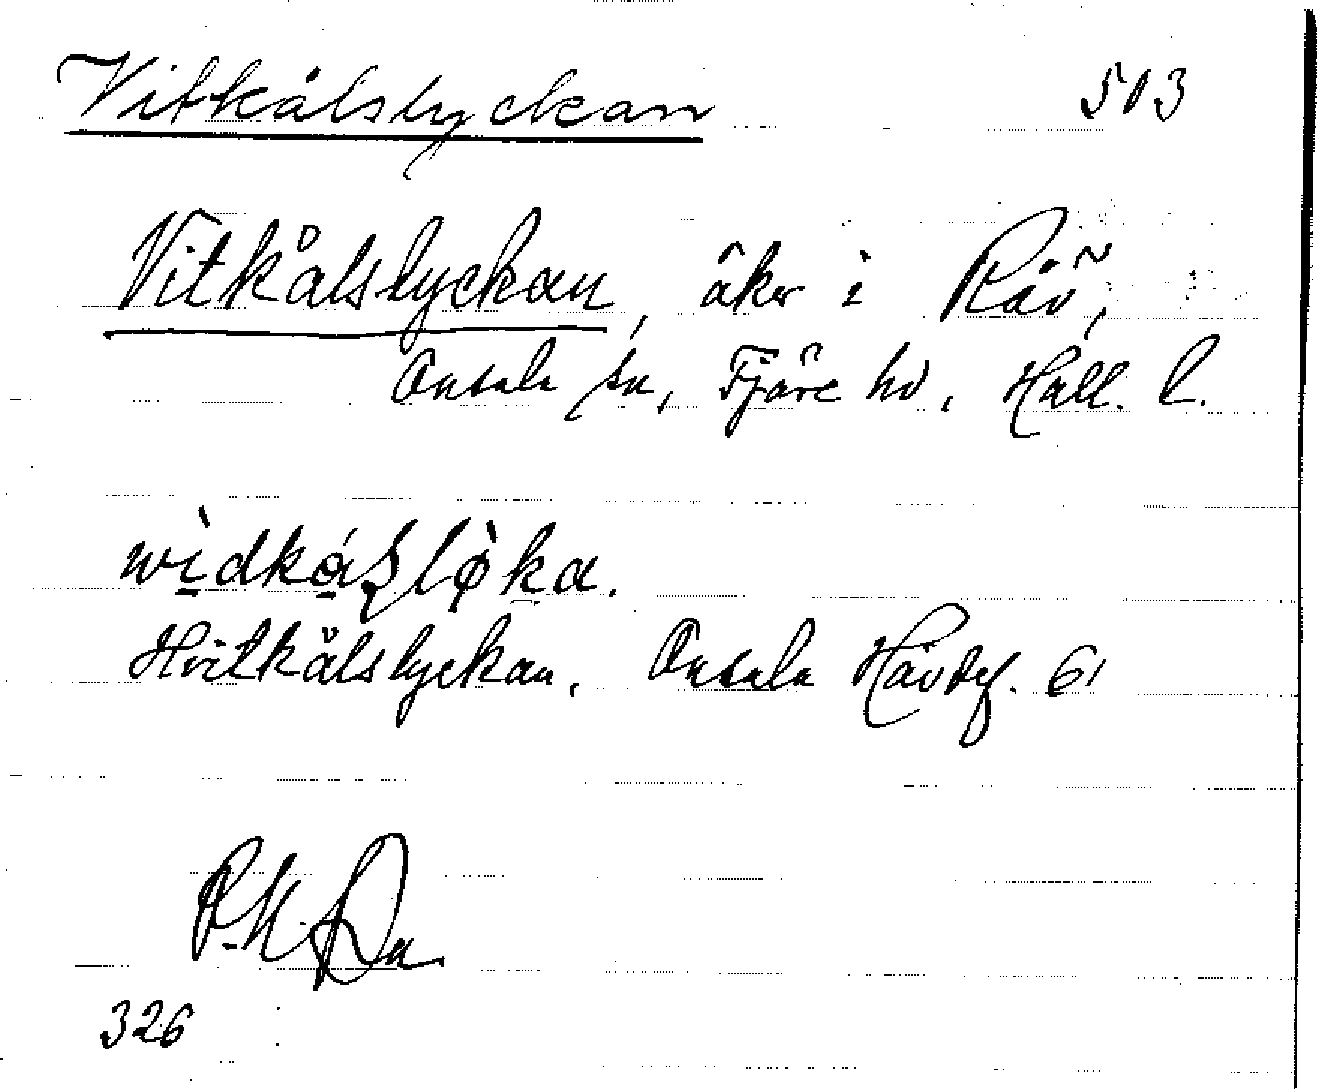 Vitkålslyckan 503
Vitkålslyckan, åker i Råö,
Onsala sn, Fjäre hd, Hall. l.
Hvitkålslyckan. Onsala Hävdef. 61
326